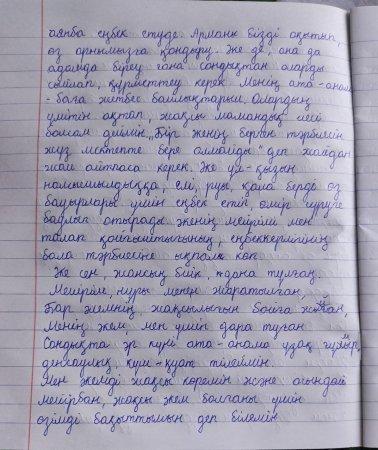 аянба еңбек етуде. Арманы бізді оқытып,
өз орнымызға қондыру. Әке де, ана да
адамда біреу ғана сондықтан оларды
сыйлап, құрметтеу керек. Менің ата-анам
- баға жетпес байлықтарым. Олардың
үмітін ақтап, жақсы мамандық иесі
болсам деймін. „Бір әкенің берген тәрбиесін
жүз мектепте бере алмайды" деп жайдан
жай айтпаса керек. Әке ұл-қызын
намысшылдыққа, елі, руы, қала берді өз
бауырлары үшін еңбек етіп, өмір сүруге
баулып отырады әкенің мейірімі мен
талап қойғыштығының, еңбекқорлығының
бала тәрбиесіне ықпалы көп.
Әке сен, жансың биік, дара тұлған,
Мейірім, нұры менен жаратылған,
Бар әлемнің, жақсылығын бойға жиған,
Менің әкем, мен үшін дара туған
Сондықтан әр күні ата-анама ұзақ ғұмыр,
денсаулық, күш-қуат тілеймін.
Мен әкемді жақсы көремін және осындай
мейірбан, жақсы әкем болғаны үшін
өзімді бақыттымын деп білемін